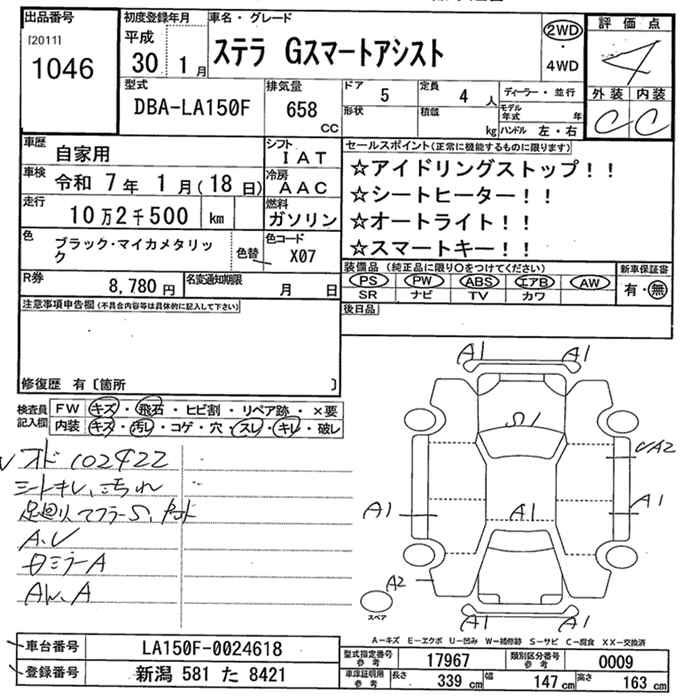 出品番号
[2011]
1046
初度登録年月
平成
30 1月
車名・グレード
ステラ Gスマートアシスト
2WD
・
4WD
評価点
4
外装 内装
C C
型式
DBA-LA150F
排気量
658
CC
ドア 5
形状
定員 4 人
積載 kg
ディーラー・並行
モデル年式 年
ハンドル 左・右
車歴
自家用
シフト
IAT
車検
令和 7年 1月(18日)
冷房
AAC
走行
10万2千500 km
燃料
ガソリン
色
ブラック・マイカメタリック
色替
色コード
X07
R券
8,780円
名変通知期限
月 日
セールスポイント(正常に機能するものに限ります)
☆アイドリングストップ!!
☆シートヒーター!!
☆オートライト!!
☆スマートキー!!
装備品(純正品に限り〇をつけてください)
PS PW ABS エアB AW
SR ナビ TV カワ
新車保証書
有・無
後日品
注意事項申告欄(不具合内容等は具体的に記入して下さい)
修復歴 有〔箇所 〕
検査員記入欄
FW キズ・飛石・ヒビ割・リペア跡・×要
内装 キズ・汚レ・コゲ・穴・スレ・キレ・破レ
オド 102422
シートキレ、汚れ
A.V
A1 A1
S1
A2
A1
A1
A1
A2
スペア
A-キズ E-エクボ U-凹み W-補修跡 S-サビ C-腐食 XX-交換済
車台番号 LA150F-0024618
登録番号 新潟 581 た 8421
型式指定番号 参考 17967 類別区分番号 参考 0009
車庫証明用 参考 長さ 339 cm 幅 147 cm 高さ 163 cm